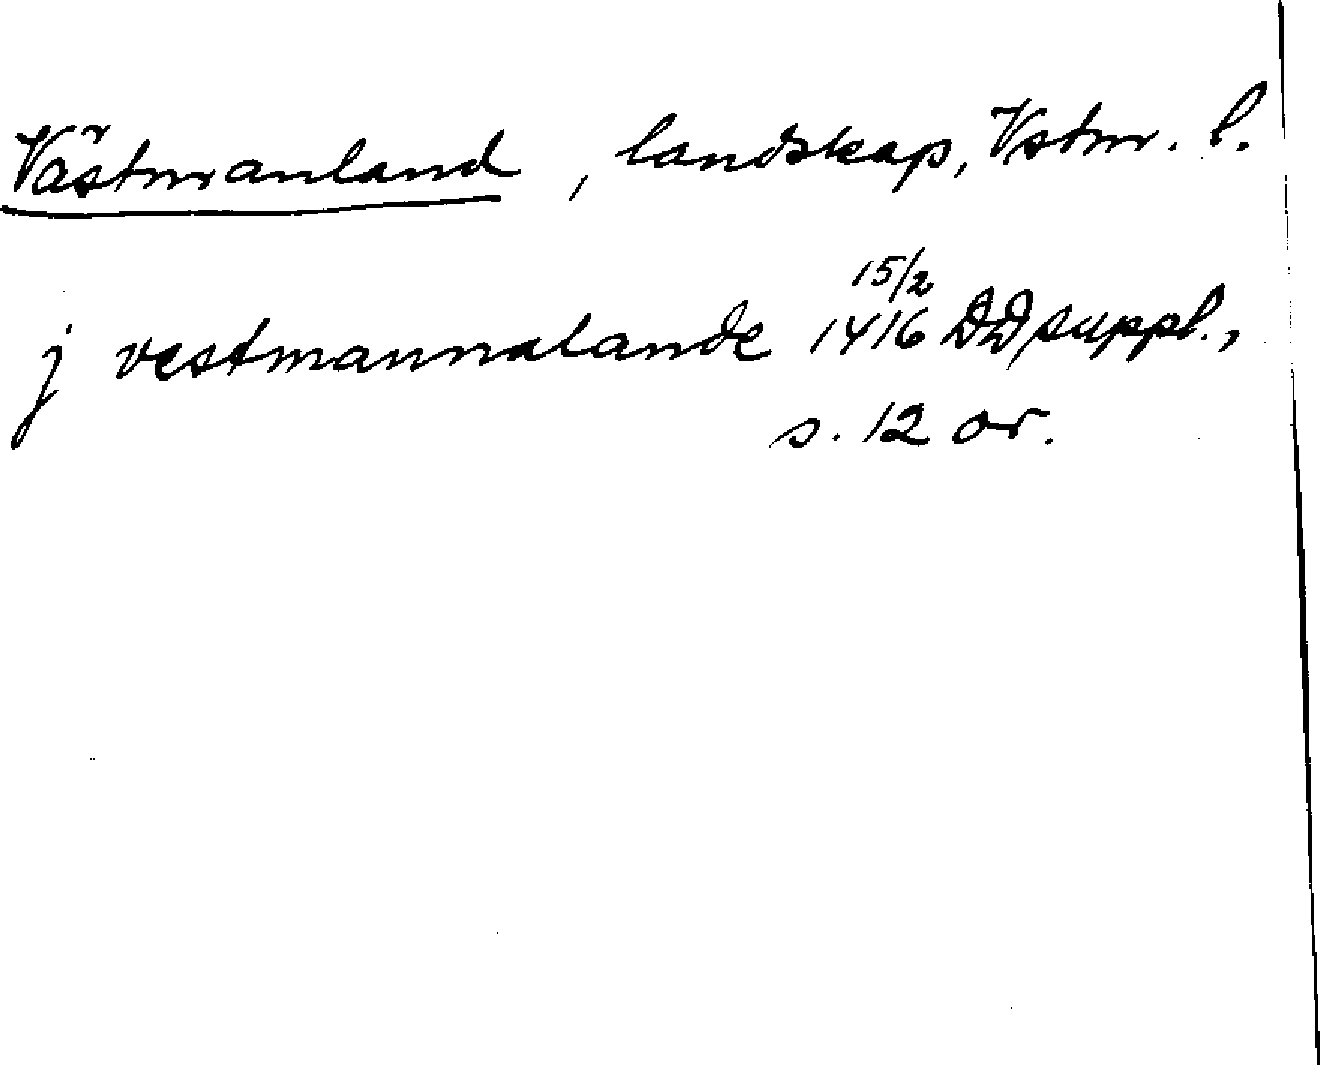 Västmanland, landskap, Vstm. l.
j vestmannalande 15/2 1416 DD suppl.,
s. 12 or.